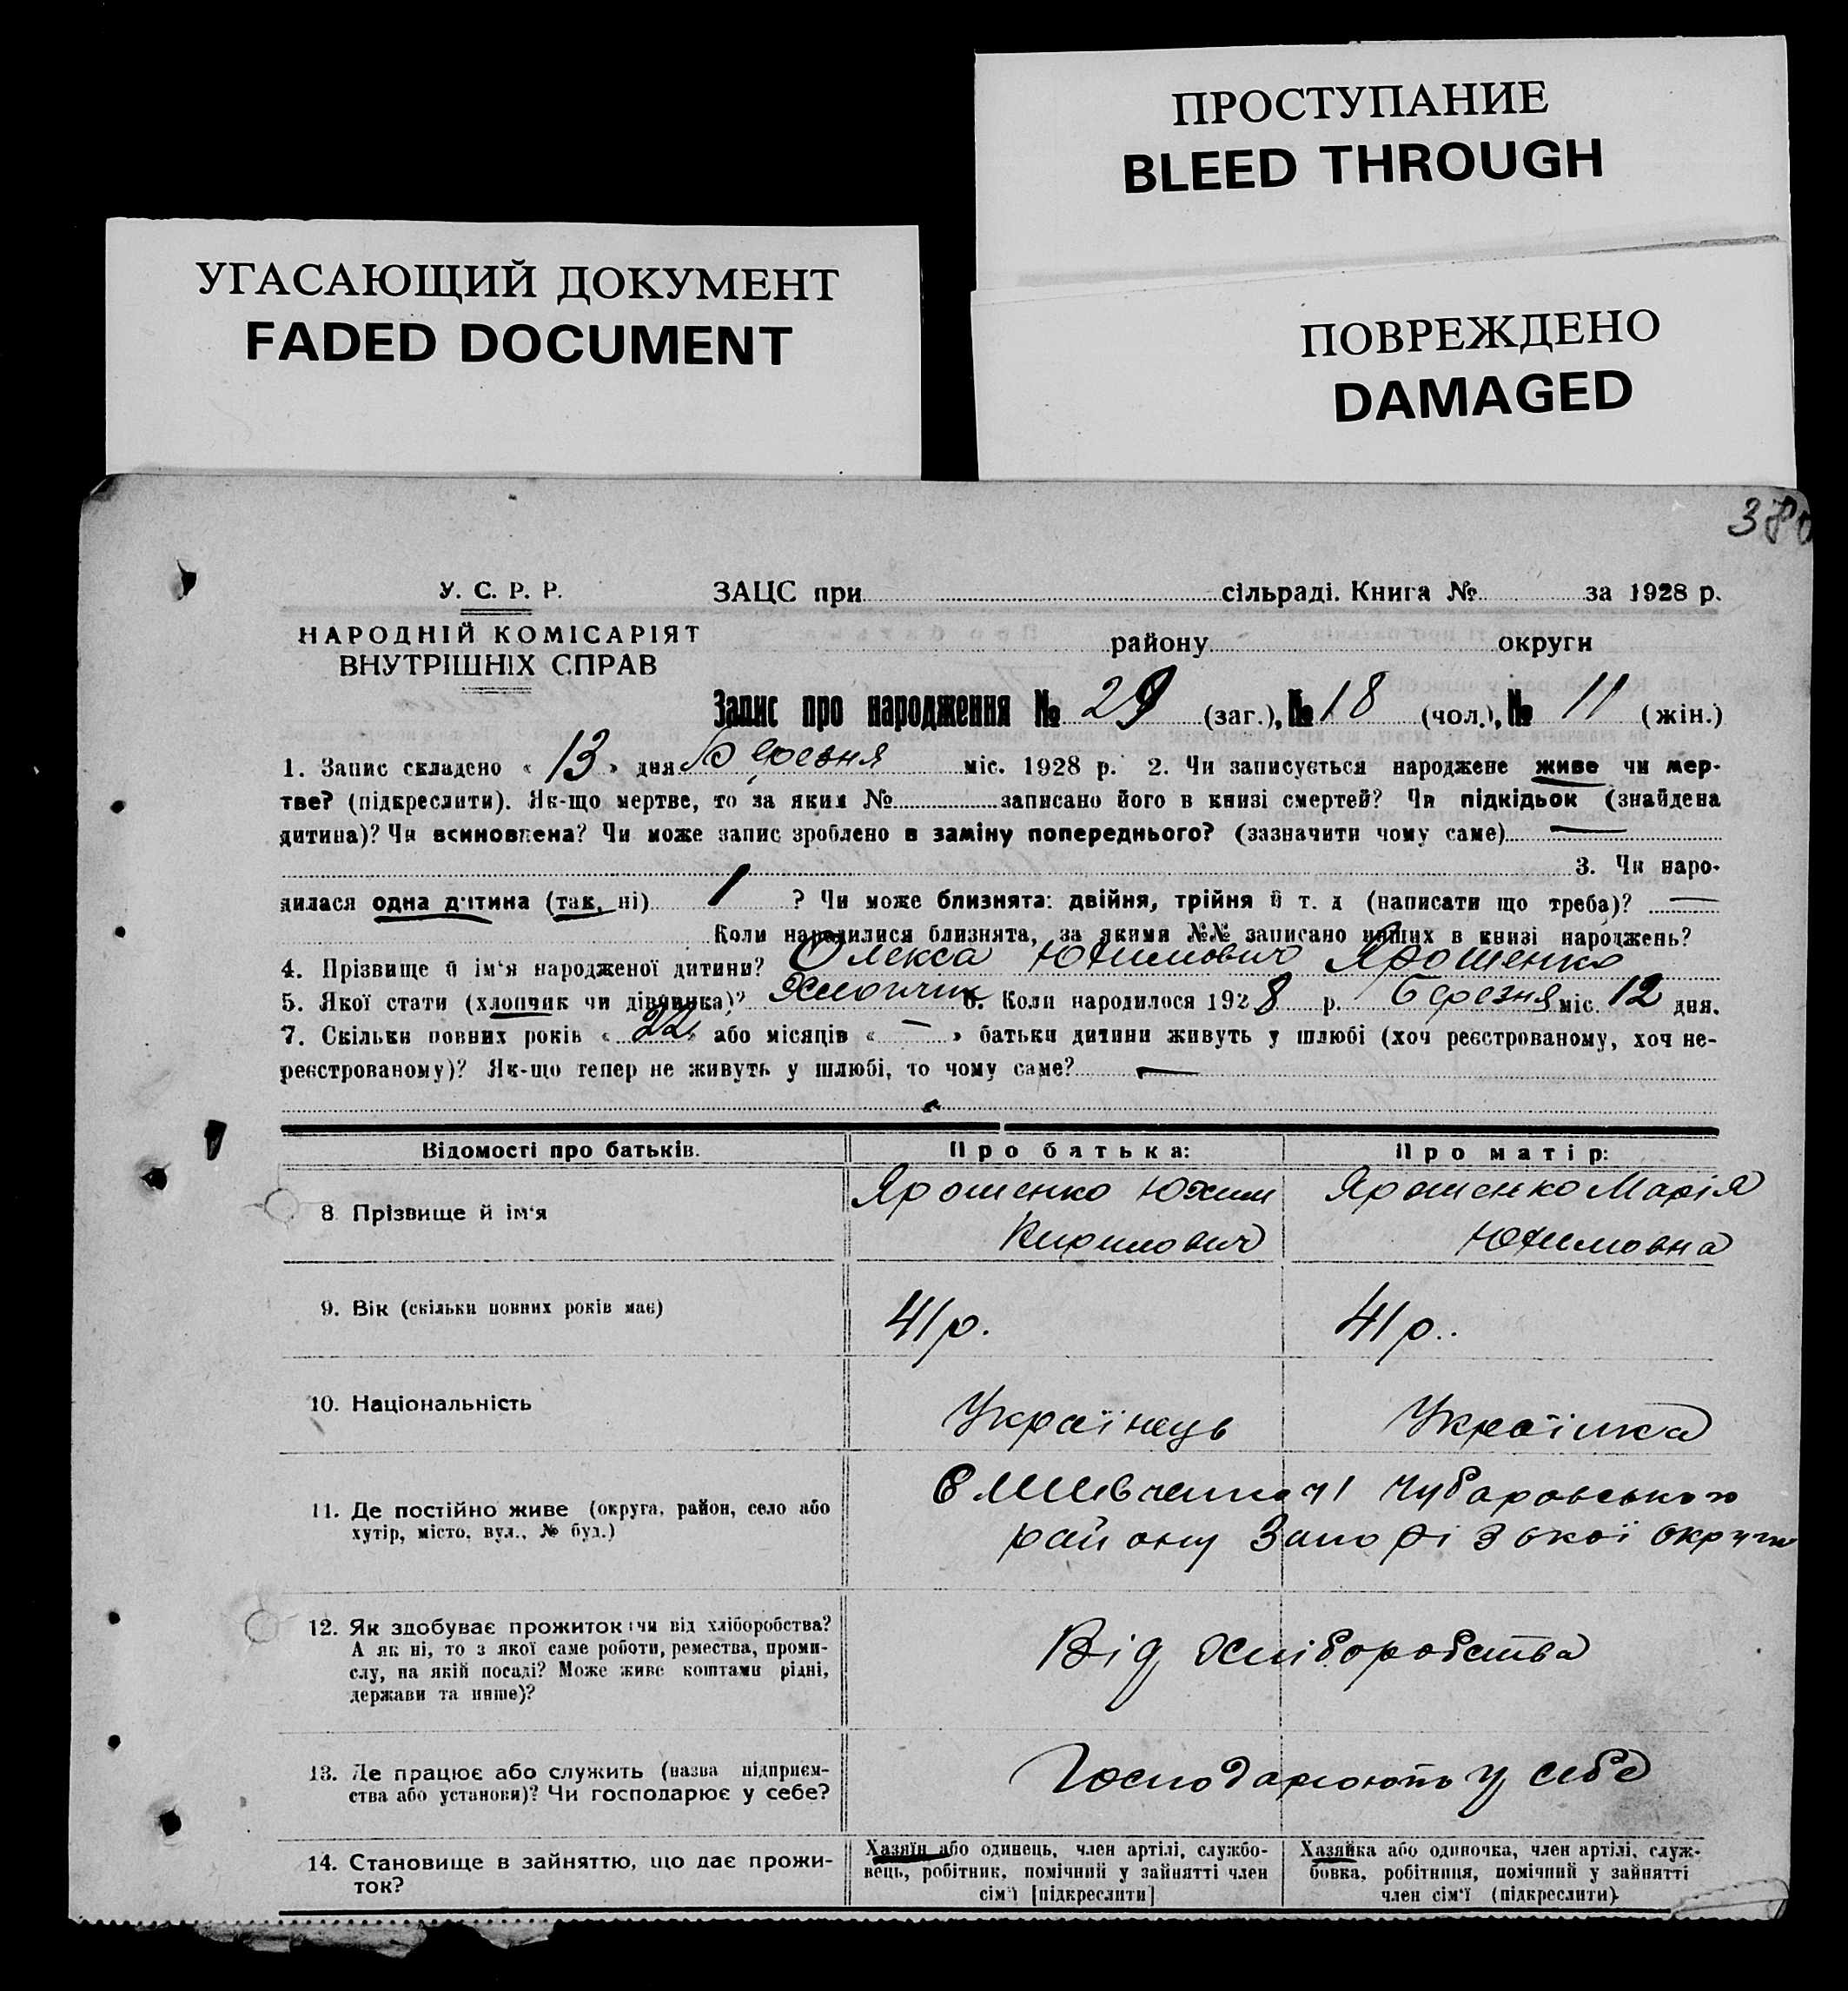 ПРОСТУПАНИЕ
BLEED THROUGH
УГАСАЮЩИЙ ДОКУМЕНТ
FADED DOCUMENT
ПОВРЕЖДЕНО
DAMAGED
У. С. Р. Р.
НАРОДНІЙ КОМІСАРІЯТ
ВНУТРІШНІХ СПРАВ
ЗАЦС при сільраді. Книга № за 1928 р.
району округи
Запис про народження № 29 (заг.), № 18 (чол.), № 11 (жін.)
1. Запис складено « 13 » дня Березня міс. 1928 р. 2. Чи записується народжене живе чи мер-
тве? (підкреслити). Як-що мертве, то за яким № записано його в книзі смертей? Чи підкідьок (знайдена
дитина)? Чи всиновлена? Чи може запис зроблено в заміну попереднього? (зазначити чому саме) —
3. Чи наро-
дилася одна дитина (так, ні) 1 ? Чи може близнята: двійня, трійня й т. д (написати що треба)? —
Коли народилися близнята, за якими №№ записано инших в книзі народжень?
4. Прізвище й ім'я народженої дитини? Олекса Юхимович Ярошенко
5. Якої стати (хлопчик чи дівчинка)? Хлопчик 6. Коли народилося 1928 р. Березня міс. 12 дня.
7. Скільки повних років « 22 » або місяців « — » батьки дитини живуть у шлюбі (хоч реєстрованому, хоч не-
реєстрованому)? Як-що тепер не живуть у шлюбі, то чому саме? —
Відомості про батьків. Про батька: Про матір:
8. Прізвище й ім'я
Ярошенко Юхим
Кирилович
Ярошенко Марія
Юхимовна
9. Вік (скільки повних років має) 41 р. 41 р.
10. Національність Українець Українка
11. Де постійно живе (округа, район, село або
хутір, місто, вул., № буд.)
Чубаровського
району Запорізької округи
12. Як здобуває прожиток: чи від хліборобства?
А як ні, то з якої саме роботи, ремества, проми-
слу, на якій посаді? Може живе коштами рідні,
держави та инше)?
Від хліборобства
13. Де працює або служить (назва підприєм-
ства або установи)? Чи господарює у себе?
Господарюють у себе
14. Становище в зайняттю, що дає прожи-
ток?
Хазяїн або одинець, член артілі, службо-
вець, робітник, помічний у зайнятті член
сім'ї [підкреслити]
Хазяйка або одиночка, член артілі, служ-
бовка, робітниця, помічний у зайнятті
член сім'ї (підкреслити)